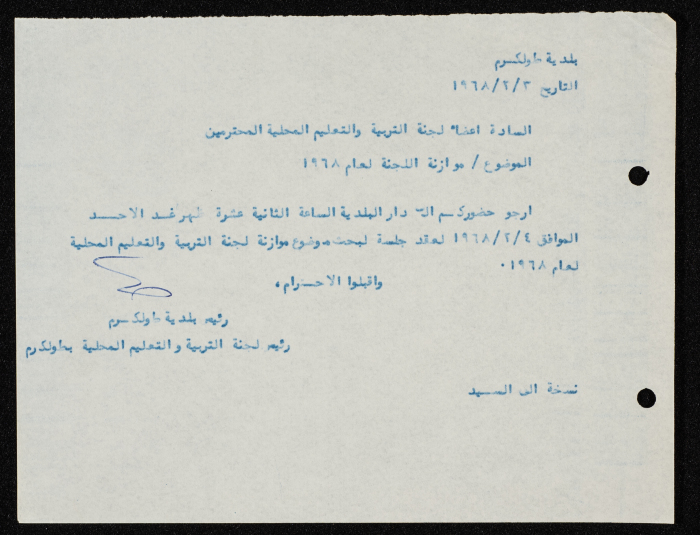 بلدية طولكرم
التاريخ ١٩٦٨/٢/٣
السادة اعضاء لجنة التربية والتعليم المحلية المحترمين
الموضوع / موازنة اللجنة لعام ١٩٦٨
ارجو حضوركم الى دار البلدية الساعة الثانية عشرة ظهر غد الاحد
الموافق ١٩٦٨/٢/٤ لعقد جلسة لبحث موضوع موازنة لجنة التربية والتعليم المحلية
لعام ١٩٦٨.
واقبلوا الاحترام،
رئيس بلدية طولكرم
رئيس لجنة التربية والتعليم المحلية بطولكرم
نسخة الى السيد